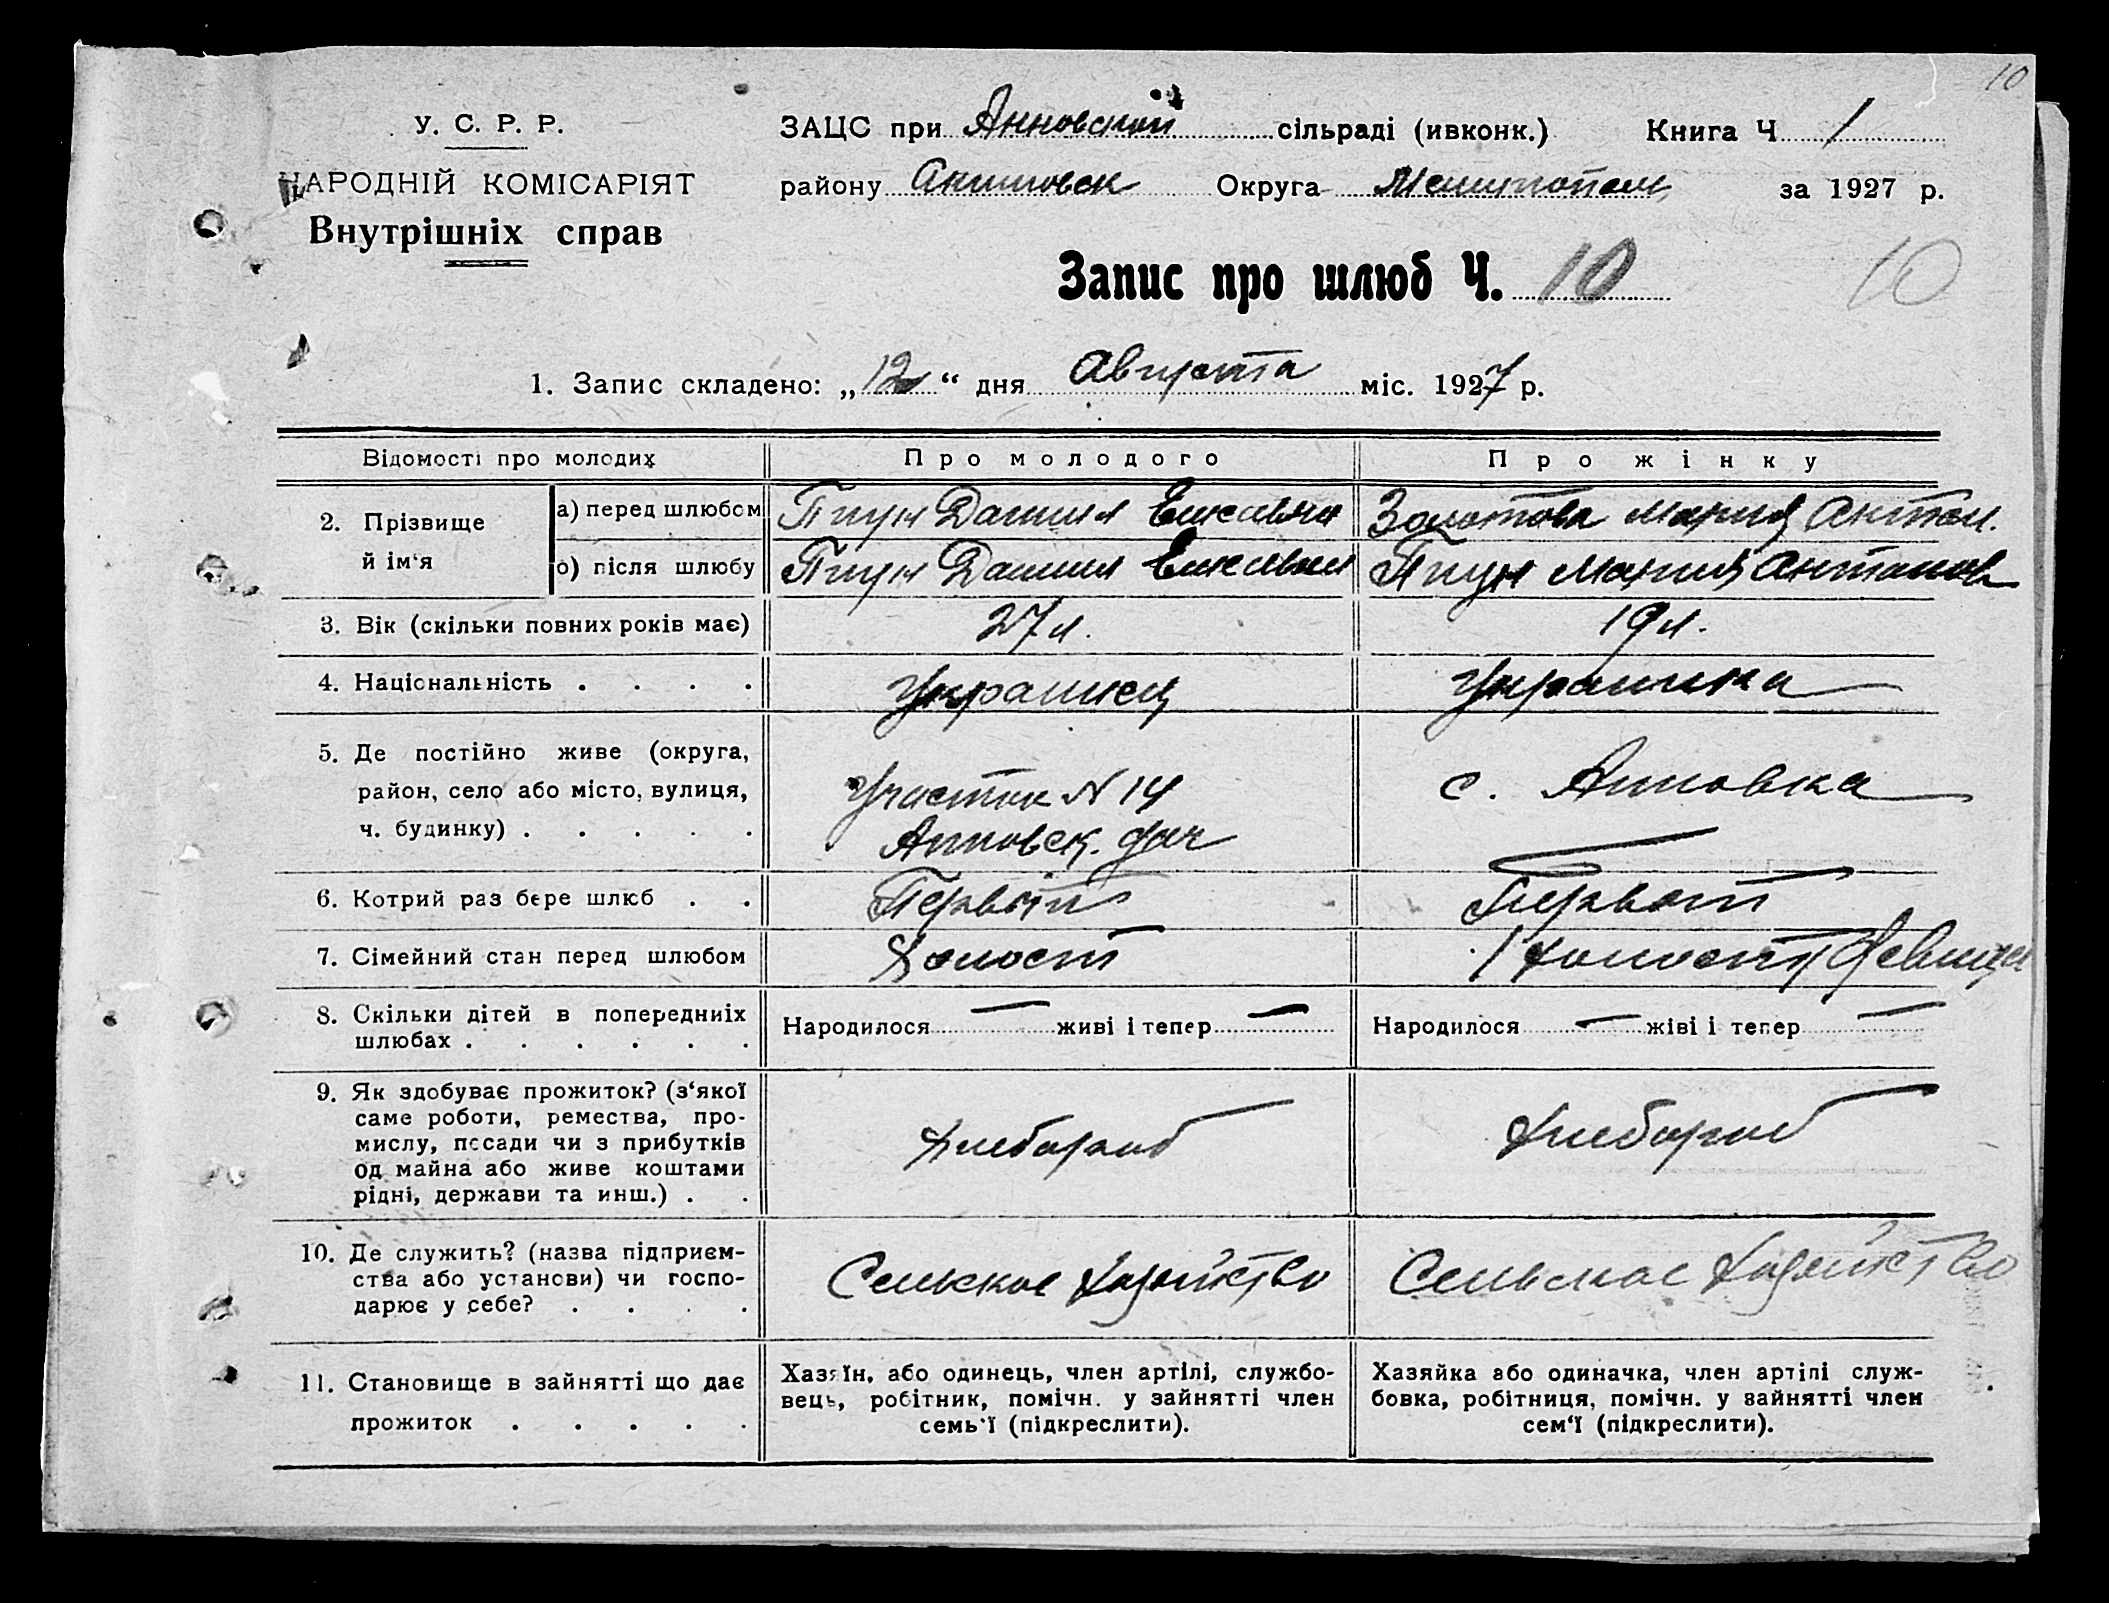 10
У. С. Р. Р.
НАРОДНІЙ КОМІСАРІЯТ
Внутрішніх справ
ЗАЦС при Анновской сільраді (ивконк.) Книга Ч 1
району Акимовск Округа Мелитопол за 1927 р.
Запис про шлюб Ч. 10
10
1. Запис складено: „12“ дня Августа міс. 1927 р.
Відомості про молодих
Про молодого
Про жінку
2. Прізвище й ім‘я
а) перед шлюбом
Данил
Золотова Мария Антон.
б) після шлюбу
Данил
Мария Антонов
3. Вік (скільки повних років має)
27 л.
19 л.
4. Національність . . . .
Украинец
Украинка
5. Де постійно живе (округа,
район, село або місто, вулиця,
ч. будинку) . . . . .
Участок N 14
Анновск. дач
с. Анновка
6. Котрий раз бере шлюб . .
Первый
7. Сімейний стан перед шлюбом
Холост
Холост Девица
8. Скільки дітей в попередниіх
шлюбах . . . . . .
Народилося — живі і тепер —
Народилося — жіві і тепер —
9. Як здобуває прожиток? (з‘якої
саме роботи, ремества, про-
мислу, посади чи з прибутків
од майна або живе коштами
рідні, держави та инш.) . .
Хлебороб
Хлебороб
10. Де служить? (назва підприєм-
ства або установи) чи госпо-
дарює у себе? . . . .
Сельское Хозяйство
Сельское Хозяйство
11. Становище в зайнятті що дає
прожиток . . . . .
Хазяїн, або одинець, член артілі, службо-
вець, робітник, помічн. у зайнятті член
семь‘ї (підкреслити).
Хазяйка або одиначка, член артілі служ-
бовка, робітниця, помічн. у зайнятті член
сем‘ї (підкреслити).